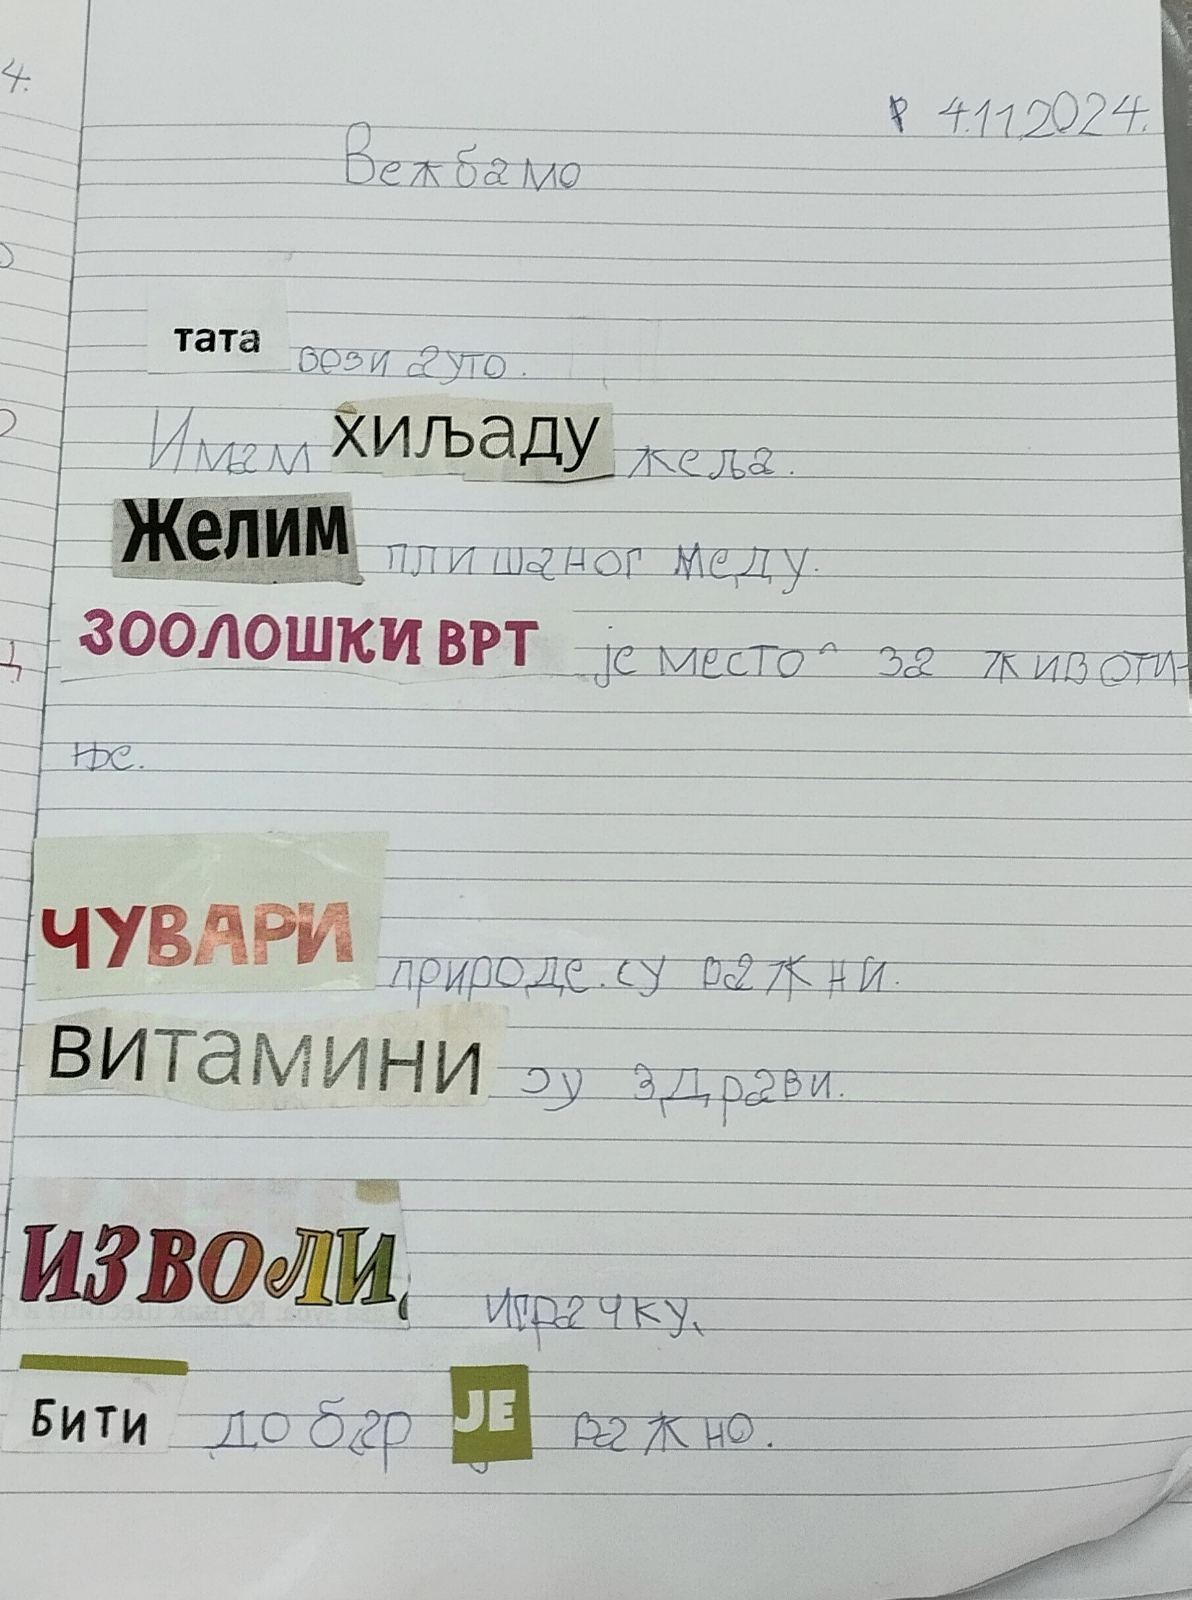 4.
4.11.2024.
Вежбамо
тата вози ауто.
Имам хиљаду жеља.
Желим плишаног меду.
ЗООЛОШКИ ВРТ је место за животи-
ње.
ЧУВАРИ природе су важни.
ВИТАМИНИ су здрави.
ИЗВОЛИ, играчку.
БИТИ добар ЈЕ важно.